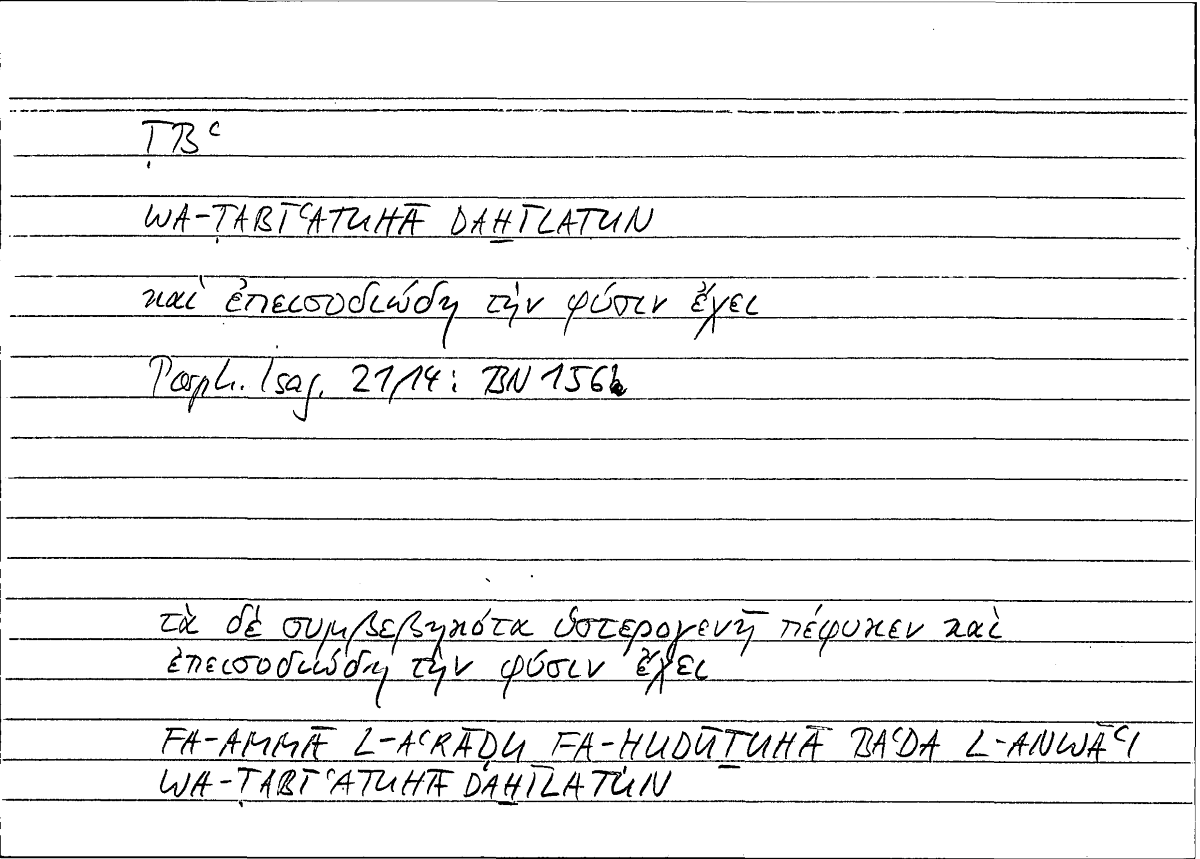 ṬBʿ
WA-ṬABĪʿATUHĀ DAḪĪLATUN
καὶ ἐπεισοδιώδη τὴν φύσιν ἔχει
Porph. Isag. 21,14: BN 156b
τὰ δὲ συμβεβηκότα ὑστερογενῆ πέφυκεν καὶ
ἐπεισοδιώδη τὴν φύσιν ἔχει
FA-AMMĀ L-AʿRĀḌU FA-HUDŪṮUHĀ BAʿDA L-ANWĀʿI
WA-ṬABĪʿATUHĀ DAḪĪLATUN